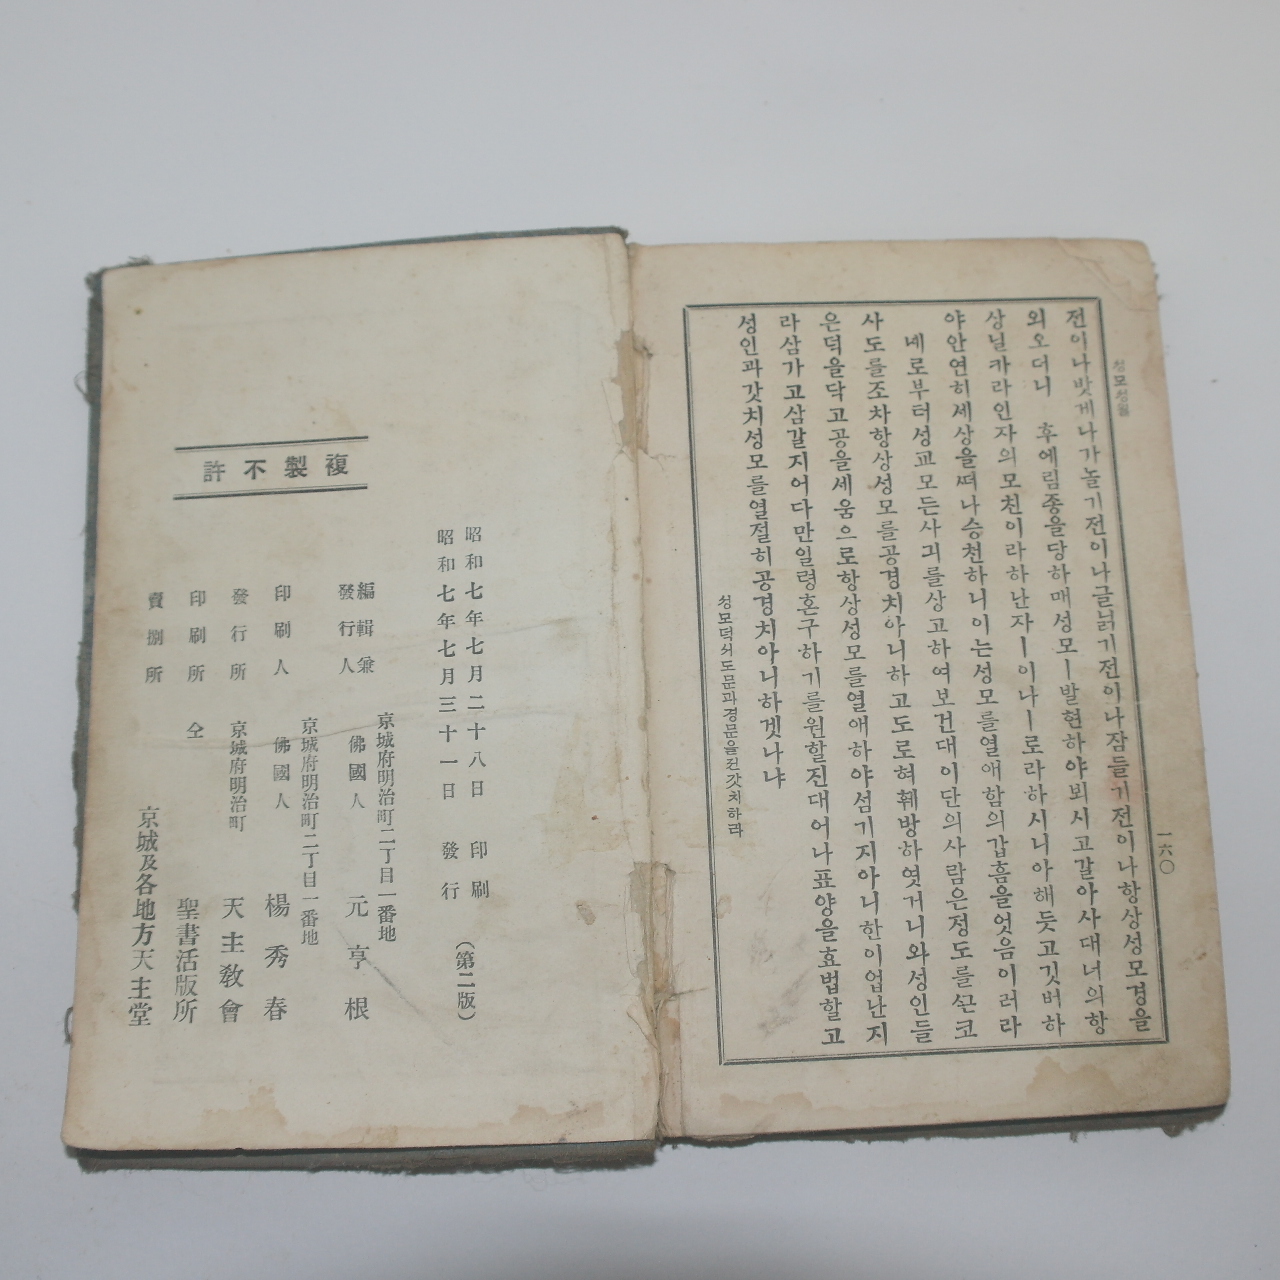 성모성월
一六〇
전이나밧게나가놀기전이나글닑기전이나잠들기전이나항상성모경을
외오더니 후에림종을당하매성모ㅣ발현하야뵈시고갈아사대너의항
상닐카라인자의모친이라하난자ㅣ이나ㅣ로라하시니아해듯고깃버하
야안연히세상을떠나승천하니이는성모를열애함의갑흠을엇음이러라
녜로부터성교모든사긔를상고하여보건대이단의사람은정도를십은코
사도를조차항상성모를공경치아니하고도로혀훼방하엿거니와성인들
은덕을닥고공을세움으로항상성모를열애하야섬기지아니한이업난지
라삼가고삼갈지어다만일령혼구하기를원할진대어나표양을효법할고
성인과갓치성모를열절히공경치아니하겟나냐
성모덕셔도문과경문을전갓치하라
複製不許
昭和七年七月二十八日 印刷
昭和七年七月三十一日 發行 (第二版)
京城府明治町二丁目一番地
編輯兼
發行人 佛國人 元亨根
京城府明治町二丁目一番地
印刷人 佛國人 楊秀春
發行所 京城府明治町 天主敎會
印刷所 仝 聖書活版所
賣捌所 京城及各地方天主堂